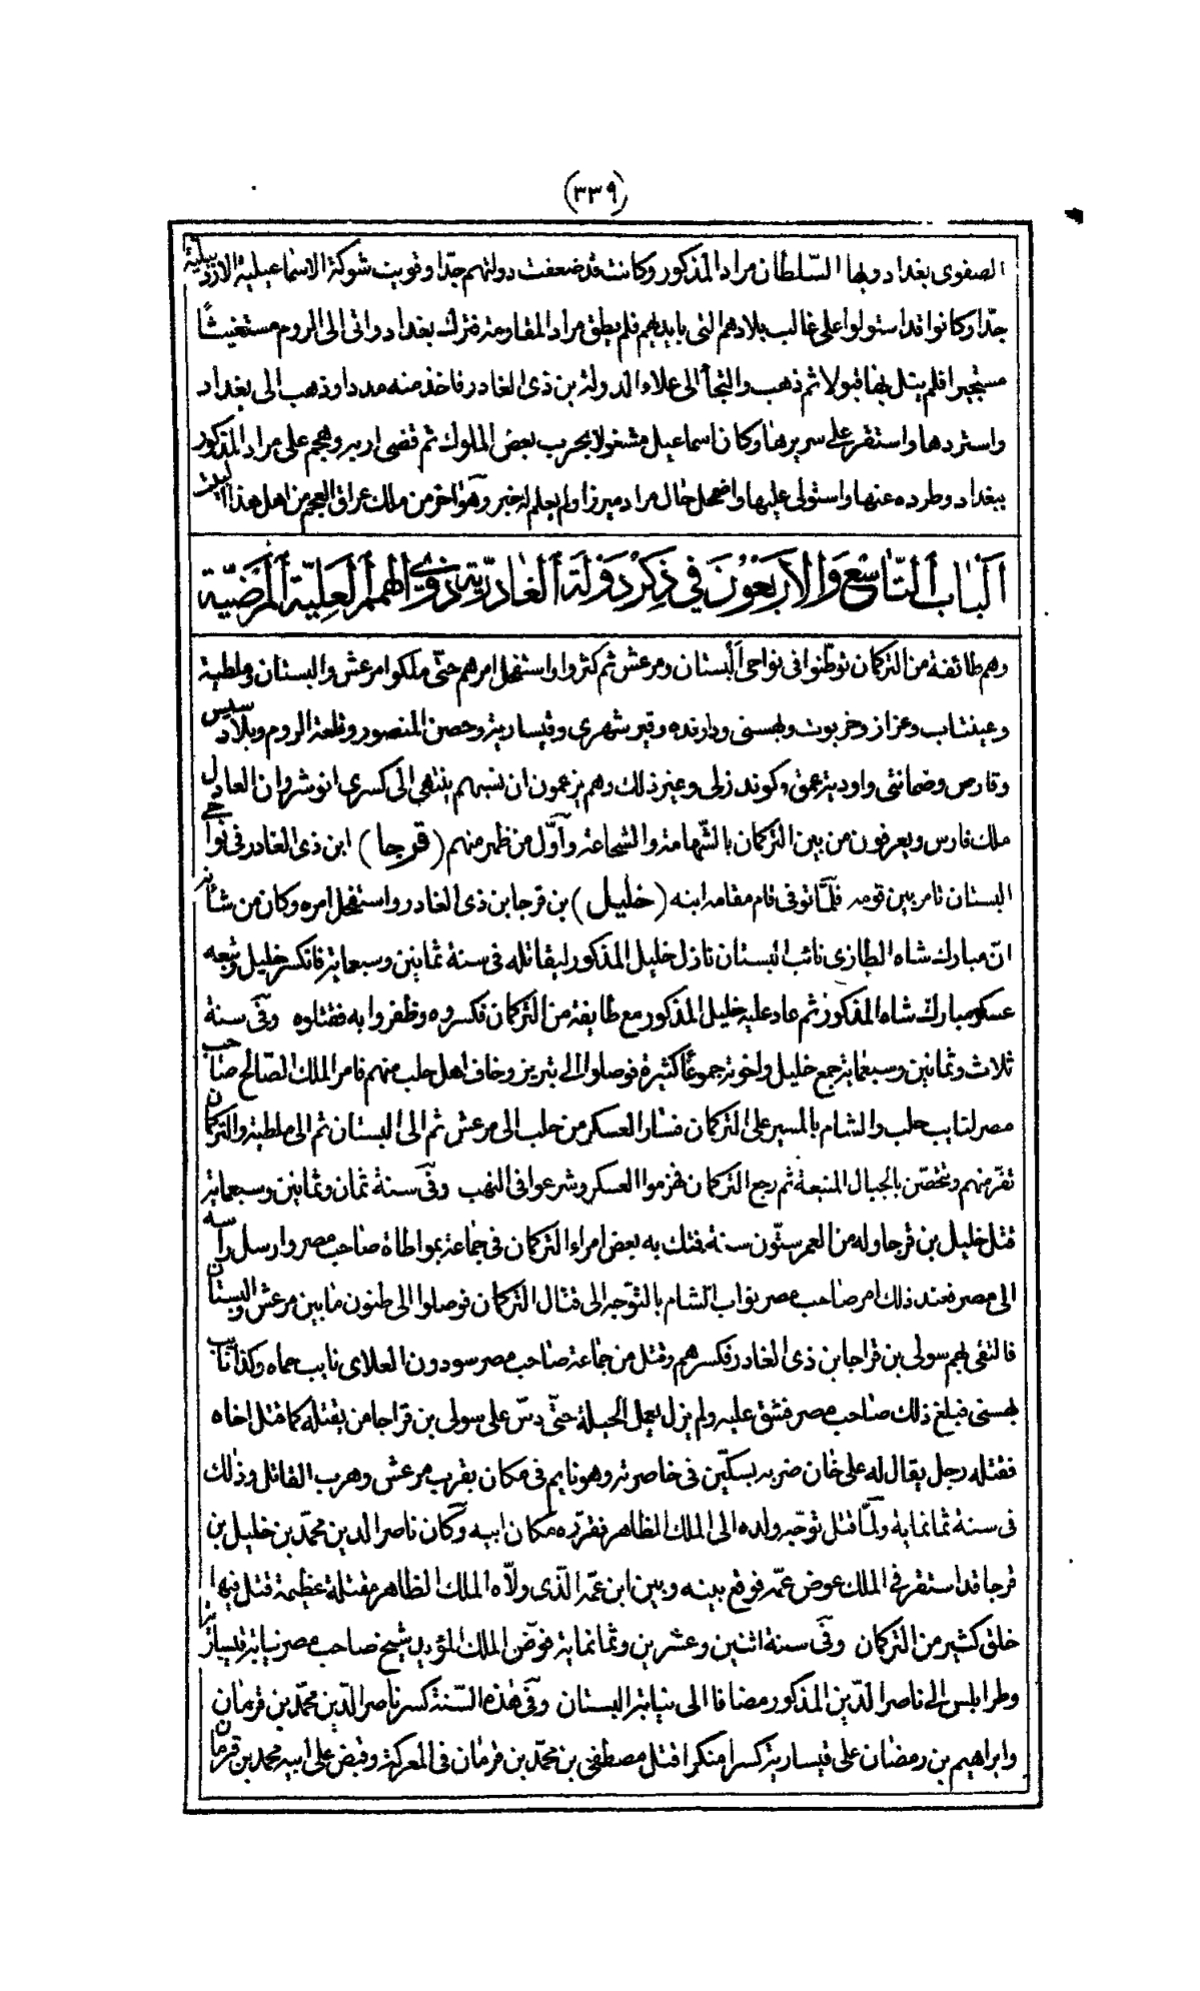 (٣٣٩)
الصفوى بغداد وبها السّلطان مراد المذكور وكانت قد ضعفت دولتهم جدّا وقويت شوكة الاسماعيلية الاردبيلية
جدّا وكانوا قد استولوا على غالب بلادهم التى بايديهم فلم يطق مراد المقاومة فترك بغداد واتى الى الروم مستغيثًا
مستجيرا فلم ينل بها قبولا ثم ذهب والتجأ الى علاء الدولة بن ذى الغادر فاخذ منه مددا وذهب الى بغداد
واستردها واستقر على سريرها وكان اسماعيل مشغولا بحرب بعض الملوك ثم قضى اربه وهجم على مراد المذكور
ببغداد وطرده عنها واستولى عليها واضمحل حال مراد ميرزا ولم يعلم له خبر وهو آخر من ملك عراق العجم من اهل هذا البيت
اَلبَابُ التَّاسِعُ وَالاَرْبَعُوْنَ فِي ذِكْرِ دَوْلَةِ الغَادِرِّيَةِ ذَوِي الهِمَمِ العَلِيَّةِ المَرْضِيَّةِ
وهم طائفة من التركمان توطّنوا فى نواحى اَلْبستان ومرعش ثم كثروا واستفحل امرهم حتّى ملكوا مرعش والبستان وملطية
وعينتاب وعزاز وخربوت وبهسنى ودارنده وقير شهرى وقيسارية وحصن المنصور وقلعة الروم وبلاد سيس
وقارص وضمانتى واودية عمق وكوندزلى وغير ذلك وهم يزعمون ان نسبهم ينتهى الى كسرى انوشروان العادل
ملك فارس ويعرفون من بين التركمان بالشّهامة والشجاعة وآوّل من ظهر منهم (قرجا) ابن ذى الغادر فى نواحى
البستان تامر بين قومه فلمّا توفى قام مقامه ابنه (خليل) بن قرجا بن ذى الغادر واستفحل امره وكان من شأنه
انّ مبارك شاه الطازى نائب البستان نازل خليل المذكور ليقاتله فى سنة ثمانين وسبعماية فانكسر خليل وتبعه
عسكر مبارك شاه المذكور ثم عاد عليه خليل المذكور مع طايفة من التركمان فكسروه وظفروا به فقتلوه وفى سنة
ثلاث وثمانين وسبعماية جمع خليل واخوته جموعًا كثيرة فوصلوا الى تبريز وخاف اهل حلب منهم فامر الملك الصّالح صاحب
مصر لنايب حلب والشام بالمسير على التركمان فسار العسكر من حلب الى مرعش ثم الى البستان ثم الى ملطية والتركمان
تفر منهم وتتحصّن بالجبال المنيعة ثم رجع التركمان فهزموا العسكر وشرعوا فى النهب وفى سنة ثمان وثمانين وسبعماية
قتل خليل بن قرجا وله من العمر ستّون سنة فتك به بعض امراء التركمان فى جماعة بمواطاة صاحب مصر وارسل رأسه
الى مصر فعند ذلك امر صاحب مصر نواب الشام بالتوّجه الى قتال التركمان فوصلوا الى طنون مابين مرعش والبستان
فالتقى بهم سولى بن قراجا بن ذى الغادر فكسرهم وقتل من جماعة صاحب مصر سودون العلاى نايب حماه وكذا نايب
بهسنى فبلغ ذلك صاحب مصر فشق عليه ولم يزل يعمل الحيلة حتّى دسّ على سولى بن قراجا من يقتله كما قتل اخاه
فقتله رجل يقال له على خان ضربه بسكّين فى خاصرته وهو نايم فى مكان بقرب مرعش وهرب القاتل وذلك
فى سنة ثمانماية ولمّا قتل توجّه ولده الى الملك الظاهر فقرّره مكان ابيه وكان ناصر الدين محمّد بن خليل بن
قرجا قد استقر فى الملك عوض عمّه فوقع بينه وبين ابن عمّه الذّى ولاّه الملك الظاهر مقتلة عظيمة قتل فيها
خلق كثير من التركمان وفى سنة اثنين وعشرين وثمانماية فوّض الملك المؤيد شيخ صاحب مصر نيابة قيسارية
وطرابلس الى ناصر الدّين المذكور مضافا الى نيابة البستان وفى هذه السّنة كسر ناصر الدّين محمّد بن قرمان
وابراهيم بن رمضان على قيسارية كسرا منكرا قتل مصطفى بن محمّد بن قرمان فى المعركة وقبض على ابيه محمد بن قرمان